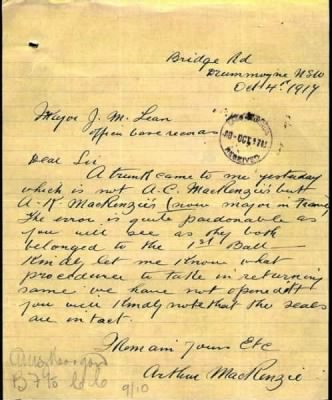 Bridge Rd
Drummoyne NSW
Oct 4th 1917
Major J. M. Lean
Officer base records
Dear Sir
A trunk came to me yesterday
which is not A.C. MacKenzie's but
A-K MacKenzie's (now major in France
The error is quite pardonable as
you will see as they both
belonged to the 1st Batt—
Kindly let me know what
procedure to take in returning
same we have not opened it
you will kindly note that the seals
are intact.
I Remain yours Etc
Arthur MacKenzie
OCT 1917
RECEIVED
B 7 to
9/10